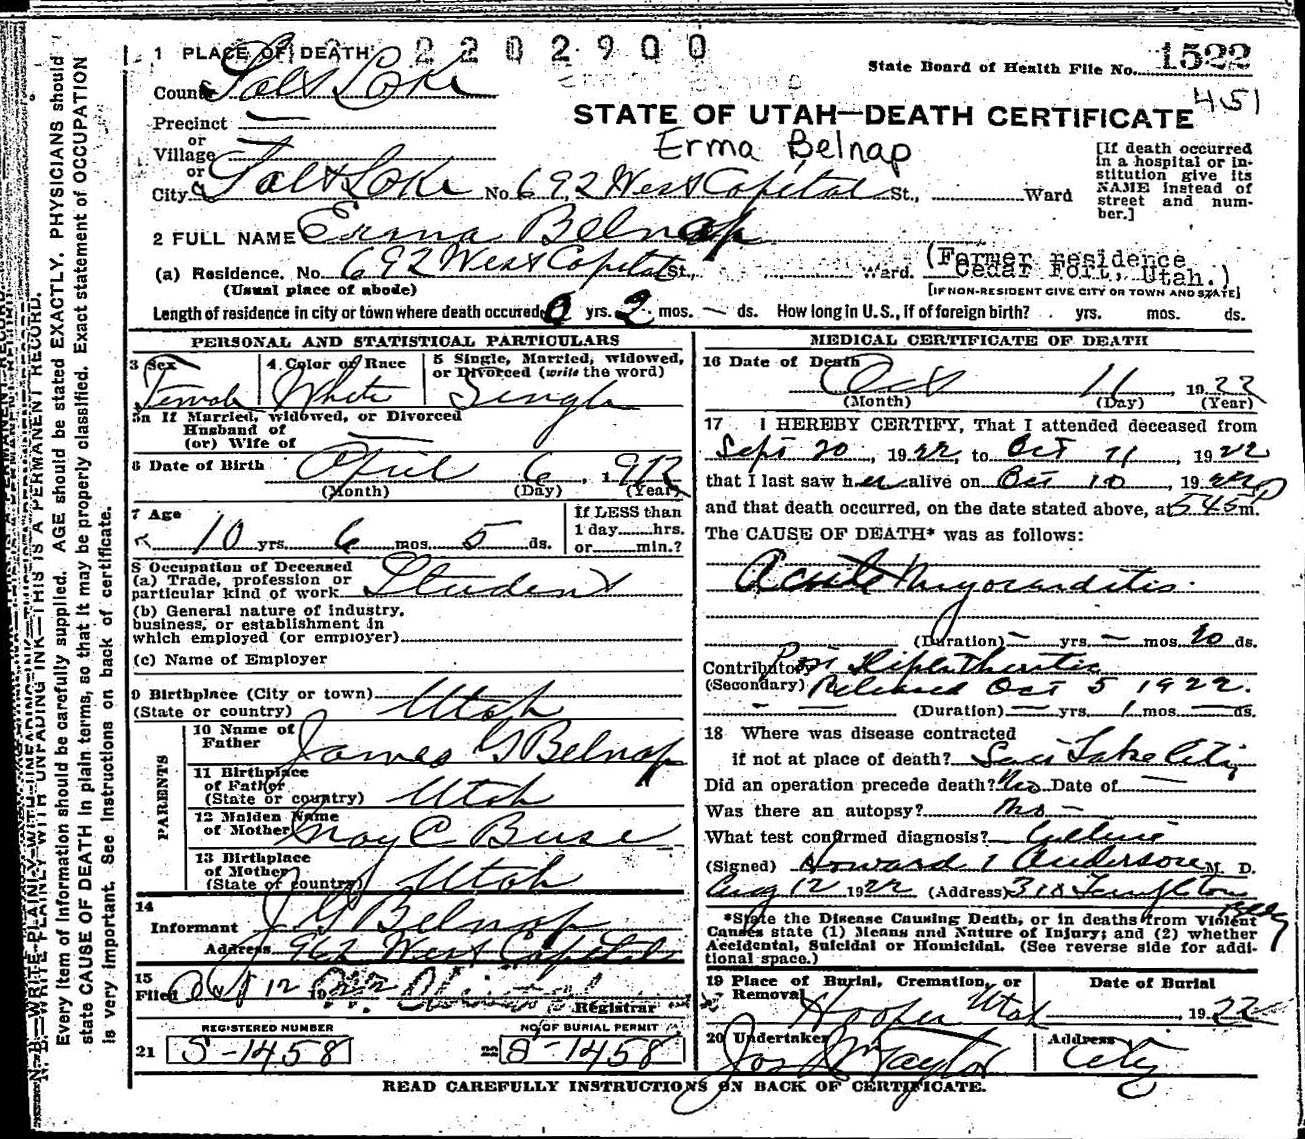 2202900
1 PLACE OF DEATH
State Board of Health File No. 1522
451
County Salt Lake
STATE OF UTAH—DEATH CERTIFICATE
Precinct
or
Village
or
Erma Belnap
[If death occurred
in a hospital or in-
stitution give its
NAME instead of
street and num-
ber.]
City Salt Lake No. 692 West Capital St., Ward
2 FULL NAME Erma Belnap
(a) Residence. No. 692 West Capital St., Ward.
(Former residence
Cedar Fort, Utah.)
(Usual place of abode)
[IF NON-RESIDENT GIVE CITY OR TOWN AND STATE]
Length of residence in city or town where death occured 0 yrs. 2 mos. — ds. How long in U.S., if of foreign birth? yrs. mos. ds.
PERSONAL AND STATISTICAL PARTICULARS
3 Sex
Female
4 Color or Race
White
5 Single, Married, widowed,
or Divorced (write the word)
Single
5a If Married, widowed, or Divorced
Husband of
(or) Wife of
6 Date of Birth April 6, 1912
(Month) (Day) (Year)
7 Age
10 yrs. 6 mos. 5 ds.
If LESS than
1 day......hrs.
or......min.?
8 Occupation of Deceased
(a) Trade, profession or
particular kind of work Student
(b) General nature of industry,
business, or establishment in
which employed (or employer)
(c) Name of Employer
9 Birthplace (City or town)
(State or country) Utah
PARENTS
10 Name of
Father James G Belnap
11 Birthplace
of Father
(State or country) Utah
12 Maiden Name
of Mother May C Buse
13 Birthplace
of Mother
(State of country) Utah
14
Informant J G Belnap
Address 962 West Capital
15
Filed Oct 12 1922
Registrar
REGISTERED NUMBER
21 S-1458
NO. OF BURIAL PERMIT
22 S-1458
MEDICAL CERTIFICATE OF DEATH
16 Date of Death
Oct 11 1922
(Month) (Day) (Year)
17 I HEREBY CERTIFY, That I attended deceased from
Sept 20, 1922, to Oct 11, 1922
that I last saw her alive on Oct 10, 1922
and that death occurred, on the date stated above, at 545 P m.
The CAUSE OF DEATH* was as follows:
Acute Myocarditis.
(Duration) — yrs. — mos. 20 ds.
Contributory Post Diphtheritic
(Secondary) Released Oct 5 1922.
(Duration) — yrs. 1 mos. — ds.
18 Where was disease contracted
if not at place of death? Salt Lake City
Did an operation precede death? No Date of —
Was there an autopsy? No —
What test confirmed diagnosis? Culture
(Signed) Howard T Anderson M. D.
Aug 12 1922 (Address) 318 Templeton Bldg
*State the Disease Causing Death, or in deaths from Violent
Causes state (1) Means and Nature of Injury; and (2) whether
Accidental, Suicidal or Homicidal. (See reverse side for addi-
tional space.)
19 Place of Burial, Cremation, or
Removal
Hooper Utah
Date of Burial
1922
20 Undertaker
Jos Wm Taylor
Address
City
READ CAREFULLY INSTRUCTIONS ON BACK OF CERTIFICATE.
N. B.—WRITE PLAINLY WITH UNFADING INK—THIS IS A PERMANENT RECORD.
Every item of information should be carefully supplied. AGE should be stated EXACTLY. PHYSICIANS should
state CAUSE OF DEATH in plain terms, so that it may be properly classified. Exact statement of OCCUPATION
is very important. See instructions on back of certificate.